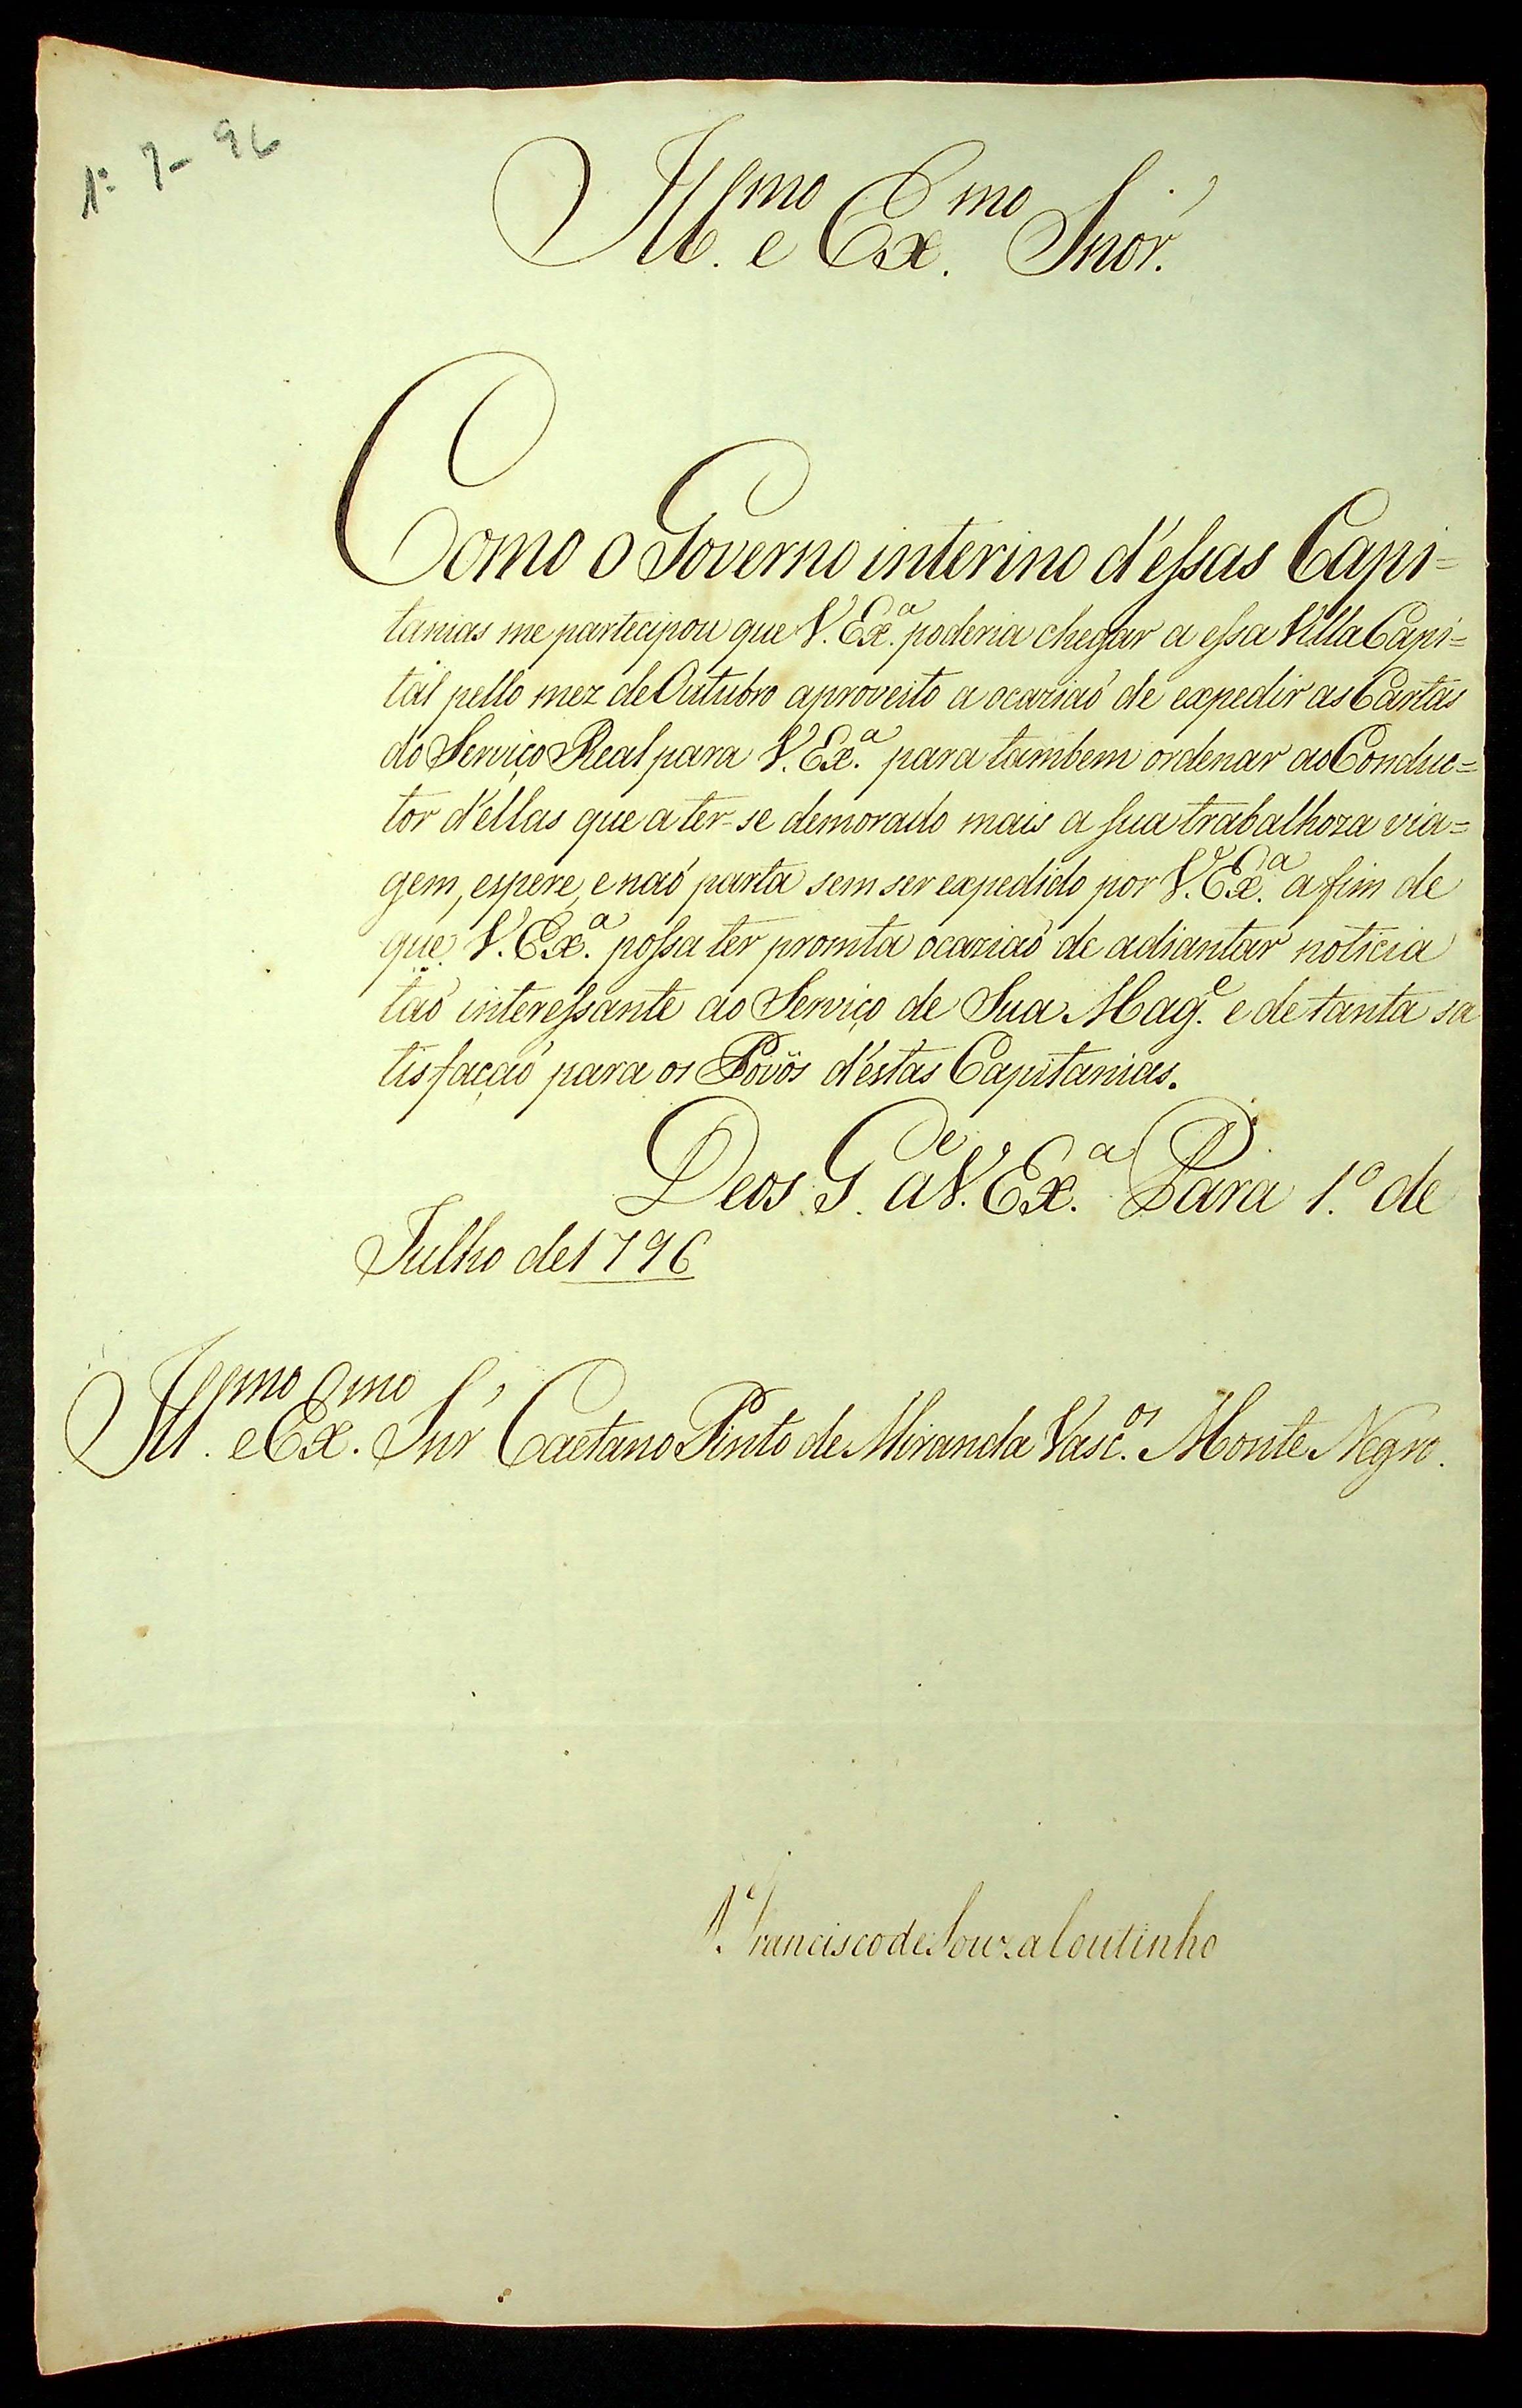 1º 7- 96
Ill.mo e Ex.mo Snor.
Como o Governo interino d'essas Capi=
tanias me partecipou que V. Ex.a poderia chegar a essa Villa Capi=
tal pello mez de Outubro aproveito a ocaziaõ de expedir as Cartas
do Serviço Real para V. Ex.a para tambem ordenar ao Conduc=
tor d'ellas que a ter-se demorado mais a sua trabalhoza via=
gem, espere, e naõ parta sem ser expedido por V. Ex.a a fim de
que V. Ex.a possa ter promta ocaziaõ de adiantar noticia
taõ interessante ao Serviço de Sua Mag.e e de tanta sa
tisfaçaõ para os Povos d'éstas Capitanias.
Deos G.de a V. Ex.a Para 1.º de
Julho de 1796
Ill.mo e Ex.mo Snr Caetano Pinto de Miranda Vasc.os Monte Negro.
Francisco de Souza Coutinho